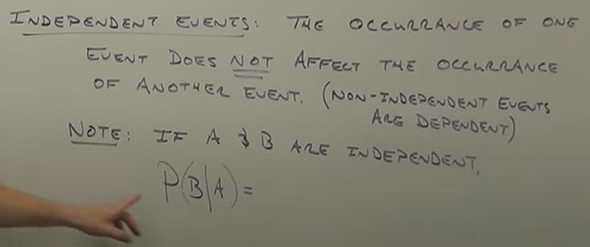 INDEPENDENT EVENTS: THE OCCURRANCE OF ONE
EVENT DOES NOT AFFECT THE OCCURRANCE
OF ANOTHER EVENT. (NON-INDEPENDENT EVENTS
ARE DEPENDENT)
NOTE: IF A & B ARE INDEPENDENT,
P(B|A) =